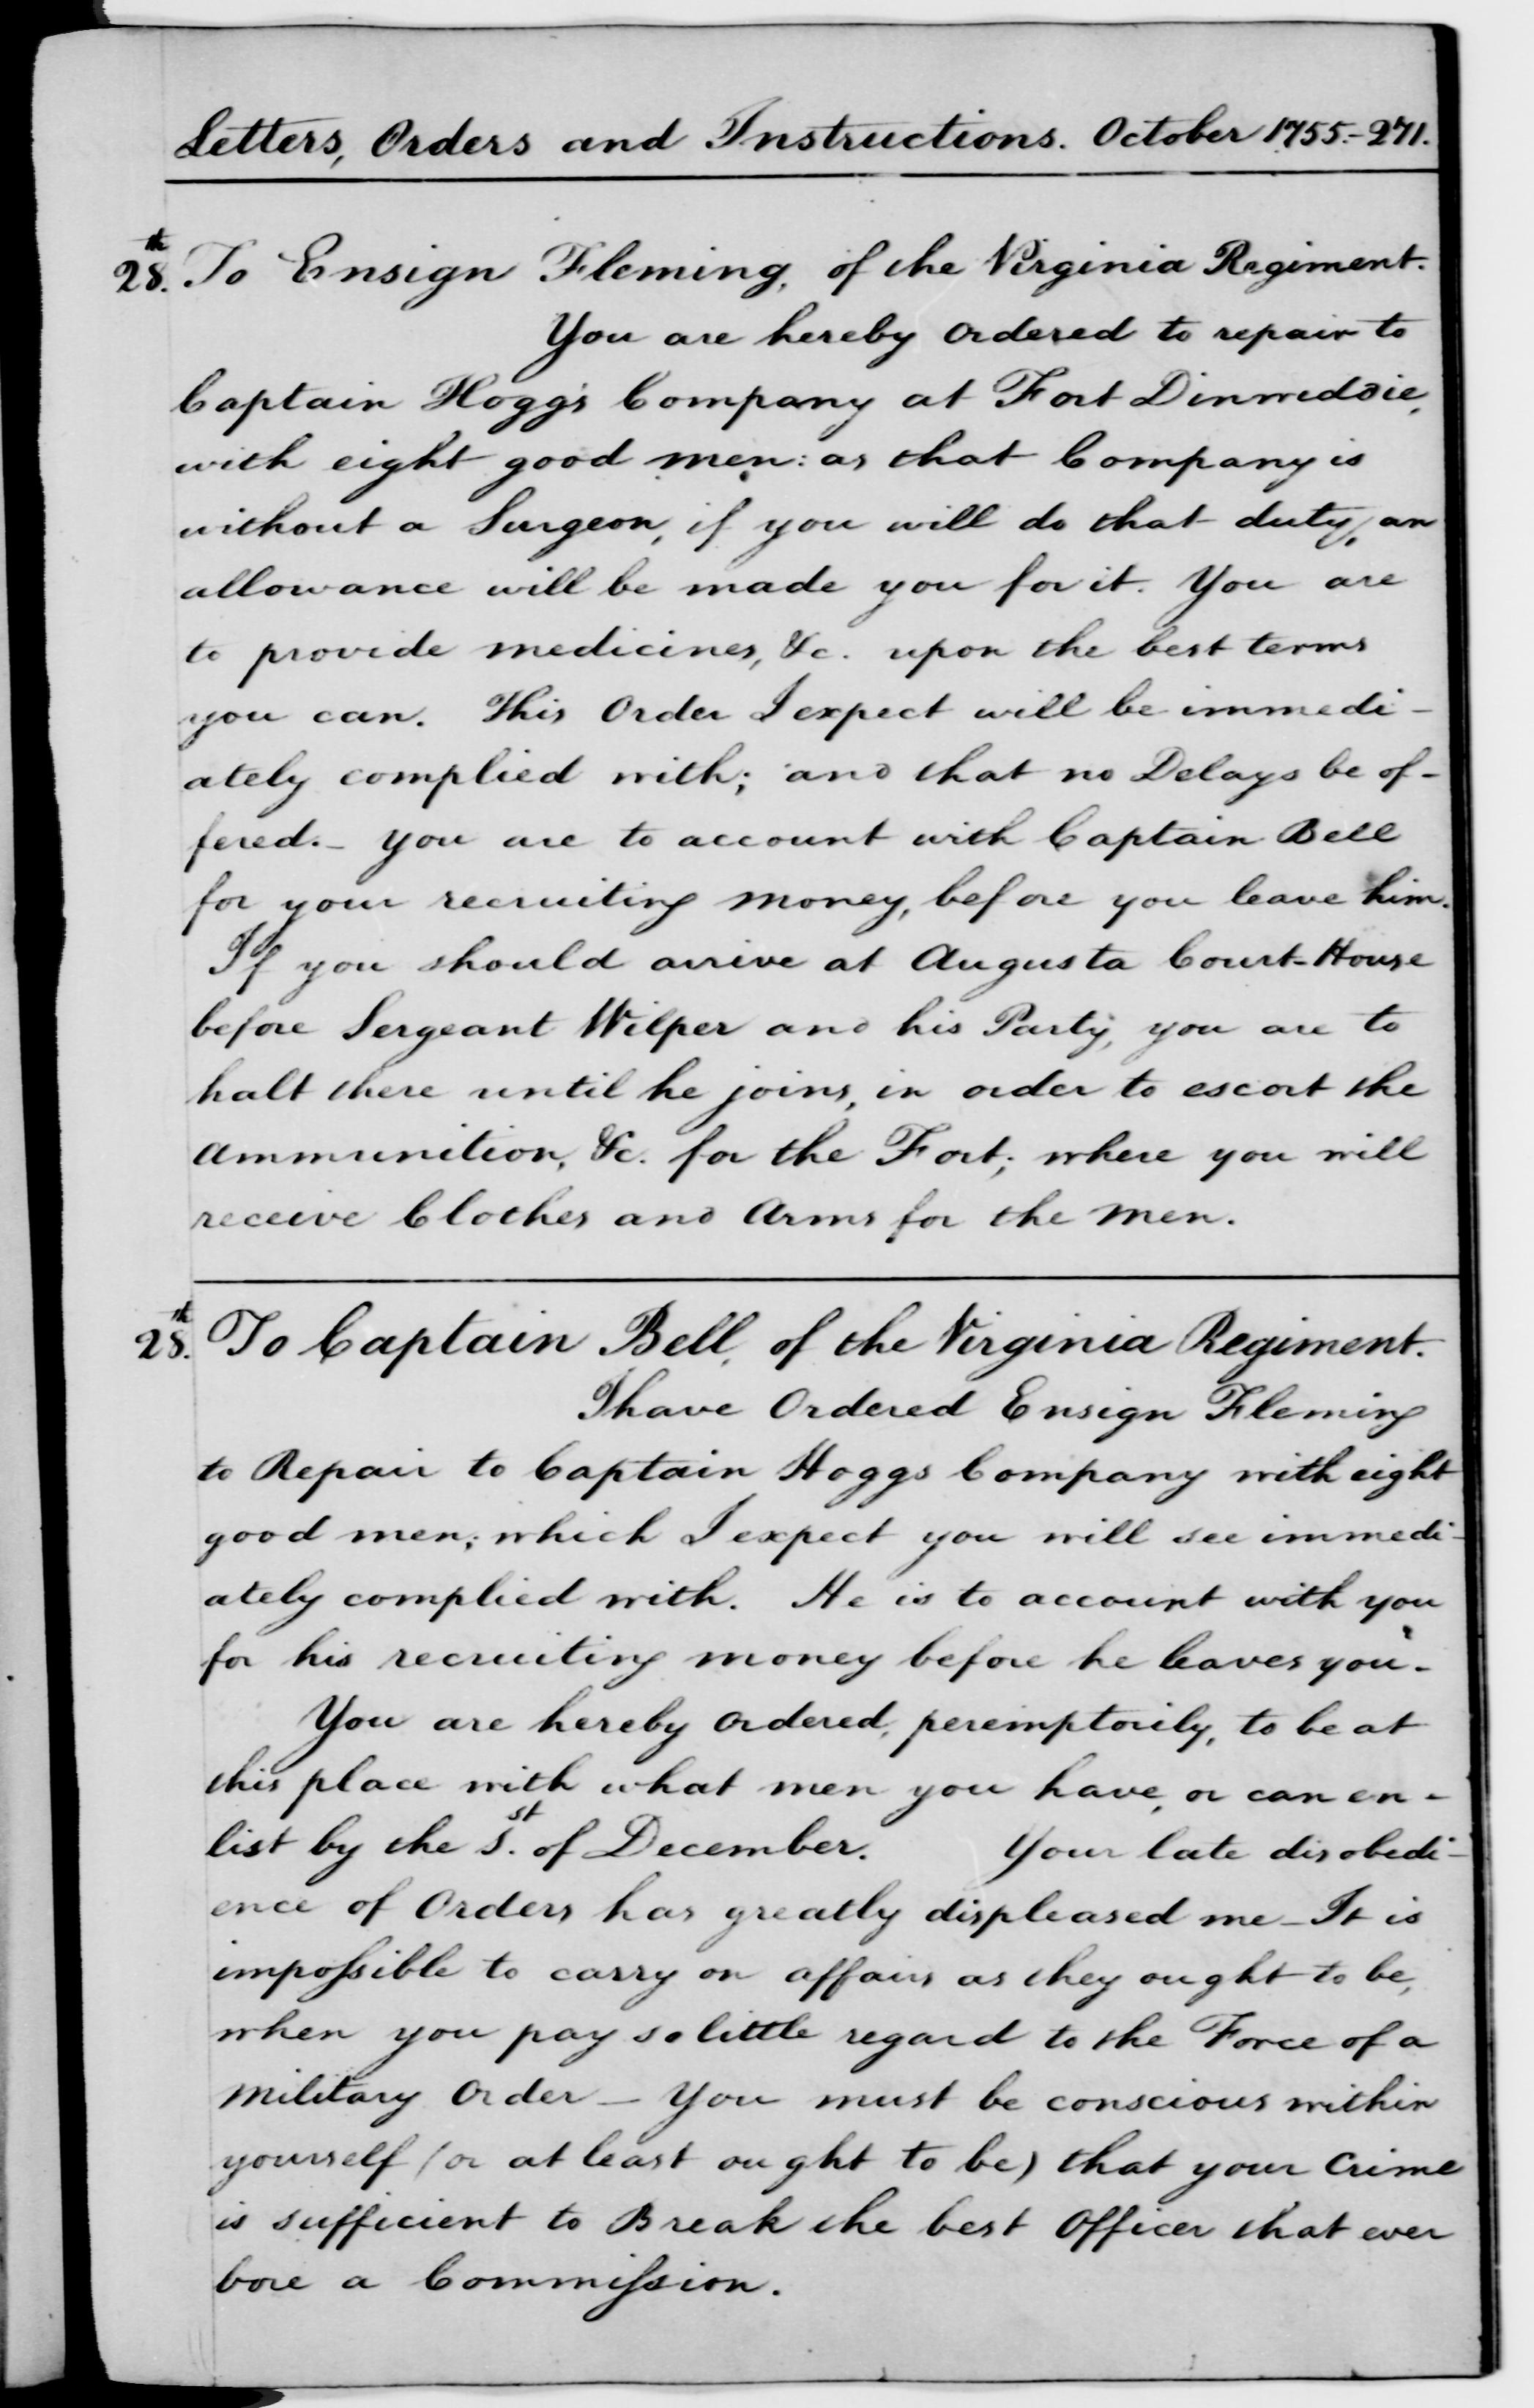 Letters, Orders and Instructions. October 1755.-271.
28.th To Ensign Fleming, of the Virginia Regiment.
You are hereby ordered to repair to
Captain Hogg's Company at Fort Dinwiddie,
with eight good men: as that Company is
without a Surgeon, if you will do that duty, an
allowance will be made you for it. You are
to provide medicines, &c. upon the best terms
you can. This Order I expect will be immedi-
ately complied with; and that no Delays be of-
fered.- you are to account with Captain Bell
for your recruiting money, before you leave him.
If you should arrive at Augusta Court-House
before Sergeant Wilper and his Party, you are to
halt there until he joins, in order to escort the
ammunition, &c. for the Fort; where you will
receive Clothes and Arms for the men.
28.th To Captain Bell, of the Virginia Regiment.
I have Ordered Ensign Fleming
to Repair to Captain Hoggs Company with eight
good men; which I expect you will see immedi-
ately complied with. He is to account with you
for his recruiting money before he leaves you.
You are hereby ordered, peremptorily, to be at
this place with what men you have, or can en-
list by the 1.st of December. Your late disobedi-
ence of Orders has greatly displeased me - It is
impossible to carry on affairs as they ought to be,
when you pay so little regard to the Force of a
military Order - You must be conscious within
yourself (or at least ought to be) that your Crime
is sufficient to Break the best Officer that ever
bore a Commission.